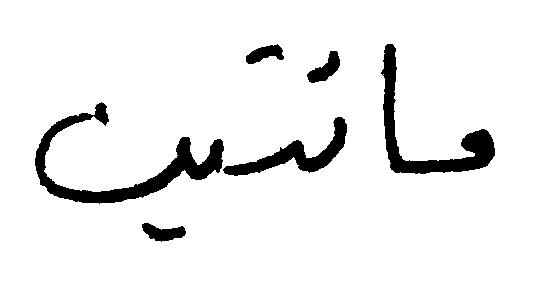 مائتين